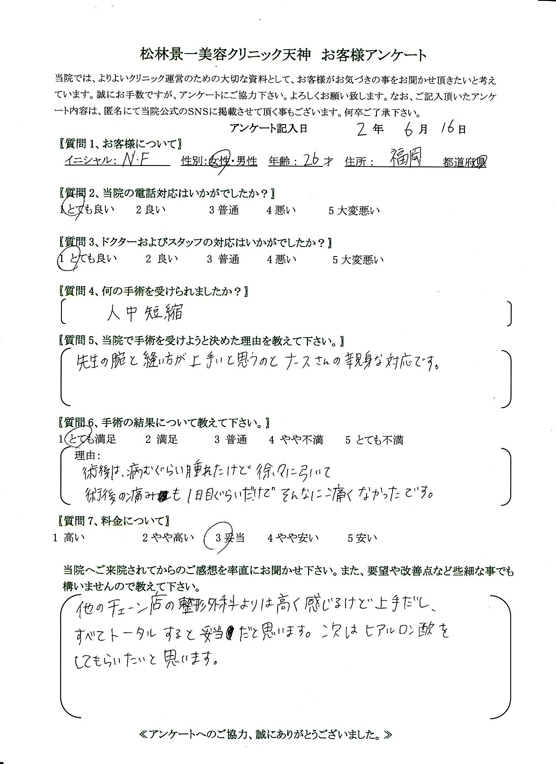 松林景一美容クリニック天神　お客様アンケート
当院では、よりよいクリニック運営のための大切な資料として、お客様がお気づきの事をお聞かせ頂きたいと考え
ています。誠にお手数ですが、アンケートにご協力下さい。よろしくお願い致します。なお、ご記入頂いたアンケ
ート内容は、匿名にて当院公式のSNSに掲載させて頂く事もございます。何卒ご了承下さい。
アンケート記入日　2 年　6 月　16 日
〖質問1、お客様について〗
イニシャル: N.F　性別:女性・男性　年齢: 26 才　住所: 福岡　都道府県
〖質問2、当院の電話対応はいかがでしたか？〗
1 とても良い　2 良い　3 普通　4 悪い　5 大変悪い
〖質問3、ドクターおよびスタッフの対応はいかがでしたか？〗
1 とても良い　2 良い　3 普通　4 悪い　5 大変悪い
〖質問4、何の手術を受けられましたか？〗
人中短縮
〖質問5、当院で手術を受けようと決めた理由を教えて下さい。〗
先生の腕と縫い方が上手いと思うのとナースさんの親身な対応です。
〖質問6、手術の結果について教えて下さい。〗
1 とても満足　2 満足　3 普通　4 やや不満　5 とても不満
理由:
術後は、病むぐらい腫れたけど徐々に引いて
術後の痛みも1日目ぐらいだけでそんなに痛くなかったです。
〖質問7、料金について〗
1 高い　2 やや高い　3 妥当　4 やや安い　5 安い
当院へご来院されてからのご感想を率直にお聞かせ下さい。また、要望や改善点など些細な事でも
構いませんので教えて下さい。
他のチェーン店の整形外科よりは高く感じるけど上手だし、
すべてトータルすると妥当だと思います。次はヒアルロン酸を
してもらいたいと思います。
≪アンケートへのご協力、誠にありがとうございました。≫